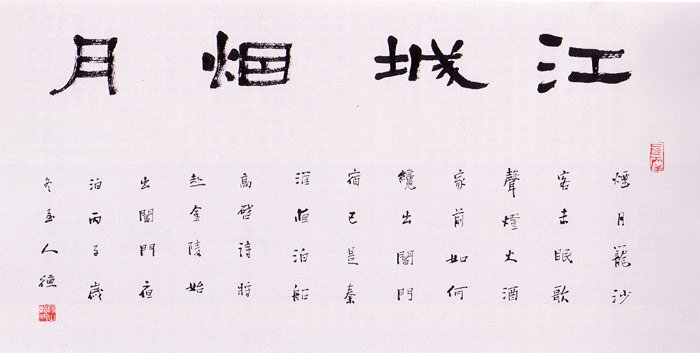 江城烟月
煙月籠沙
客未眠歌
聲燈火酒
家前如何
纔出閶門
宿已是秦
淮夜泊船
高啓詩將
赴金陵始
出閶門夜
泊丙子歲
冬至人